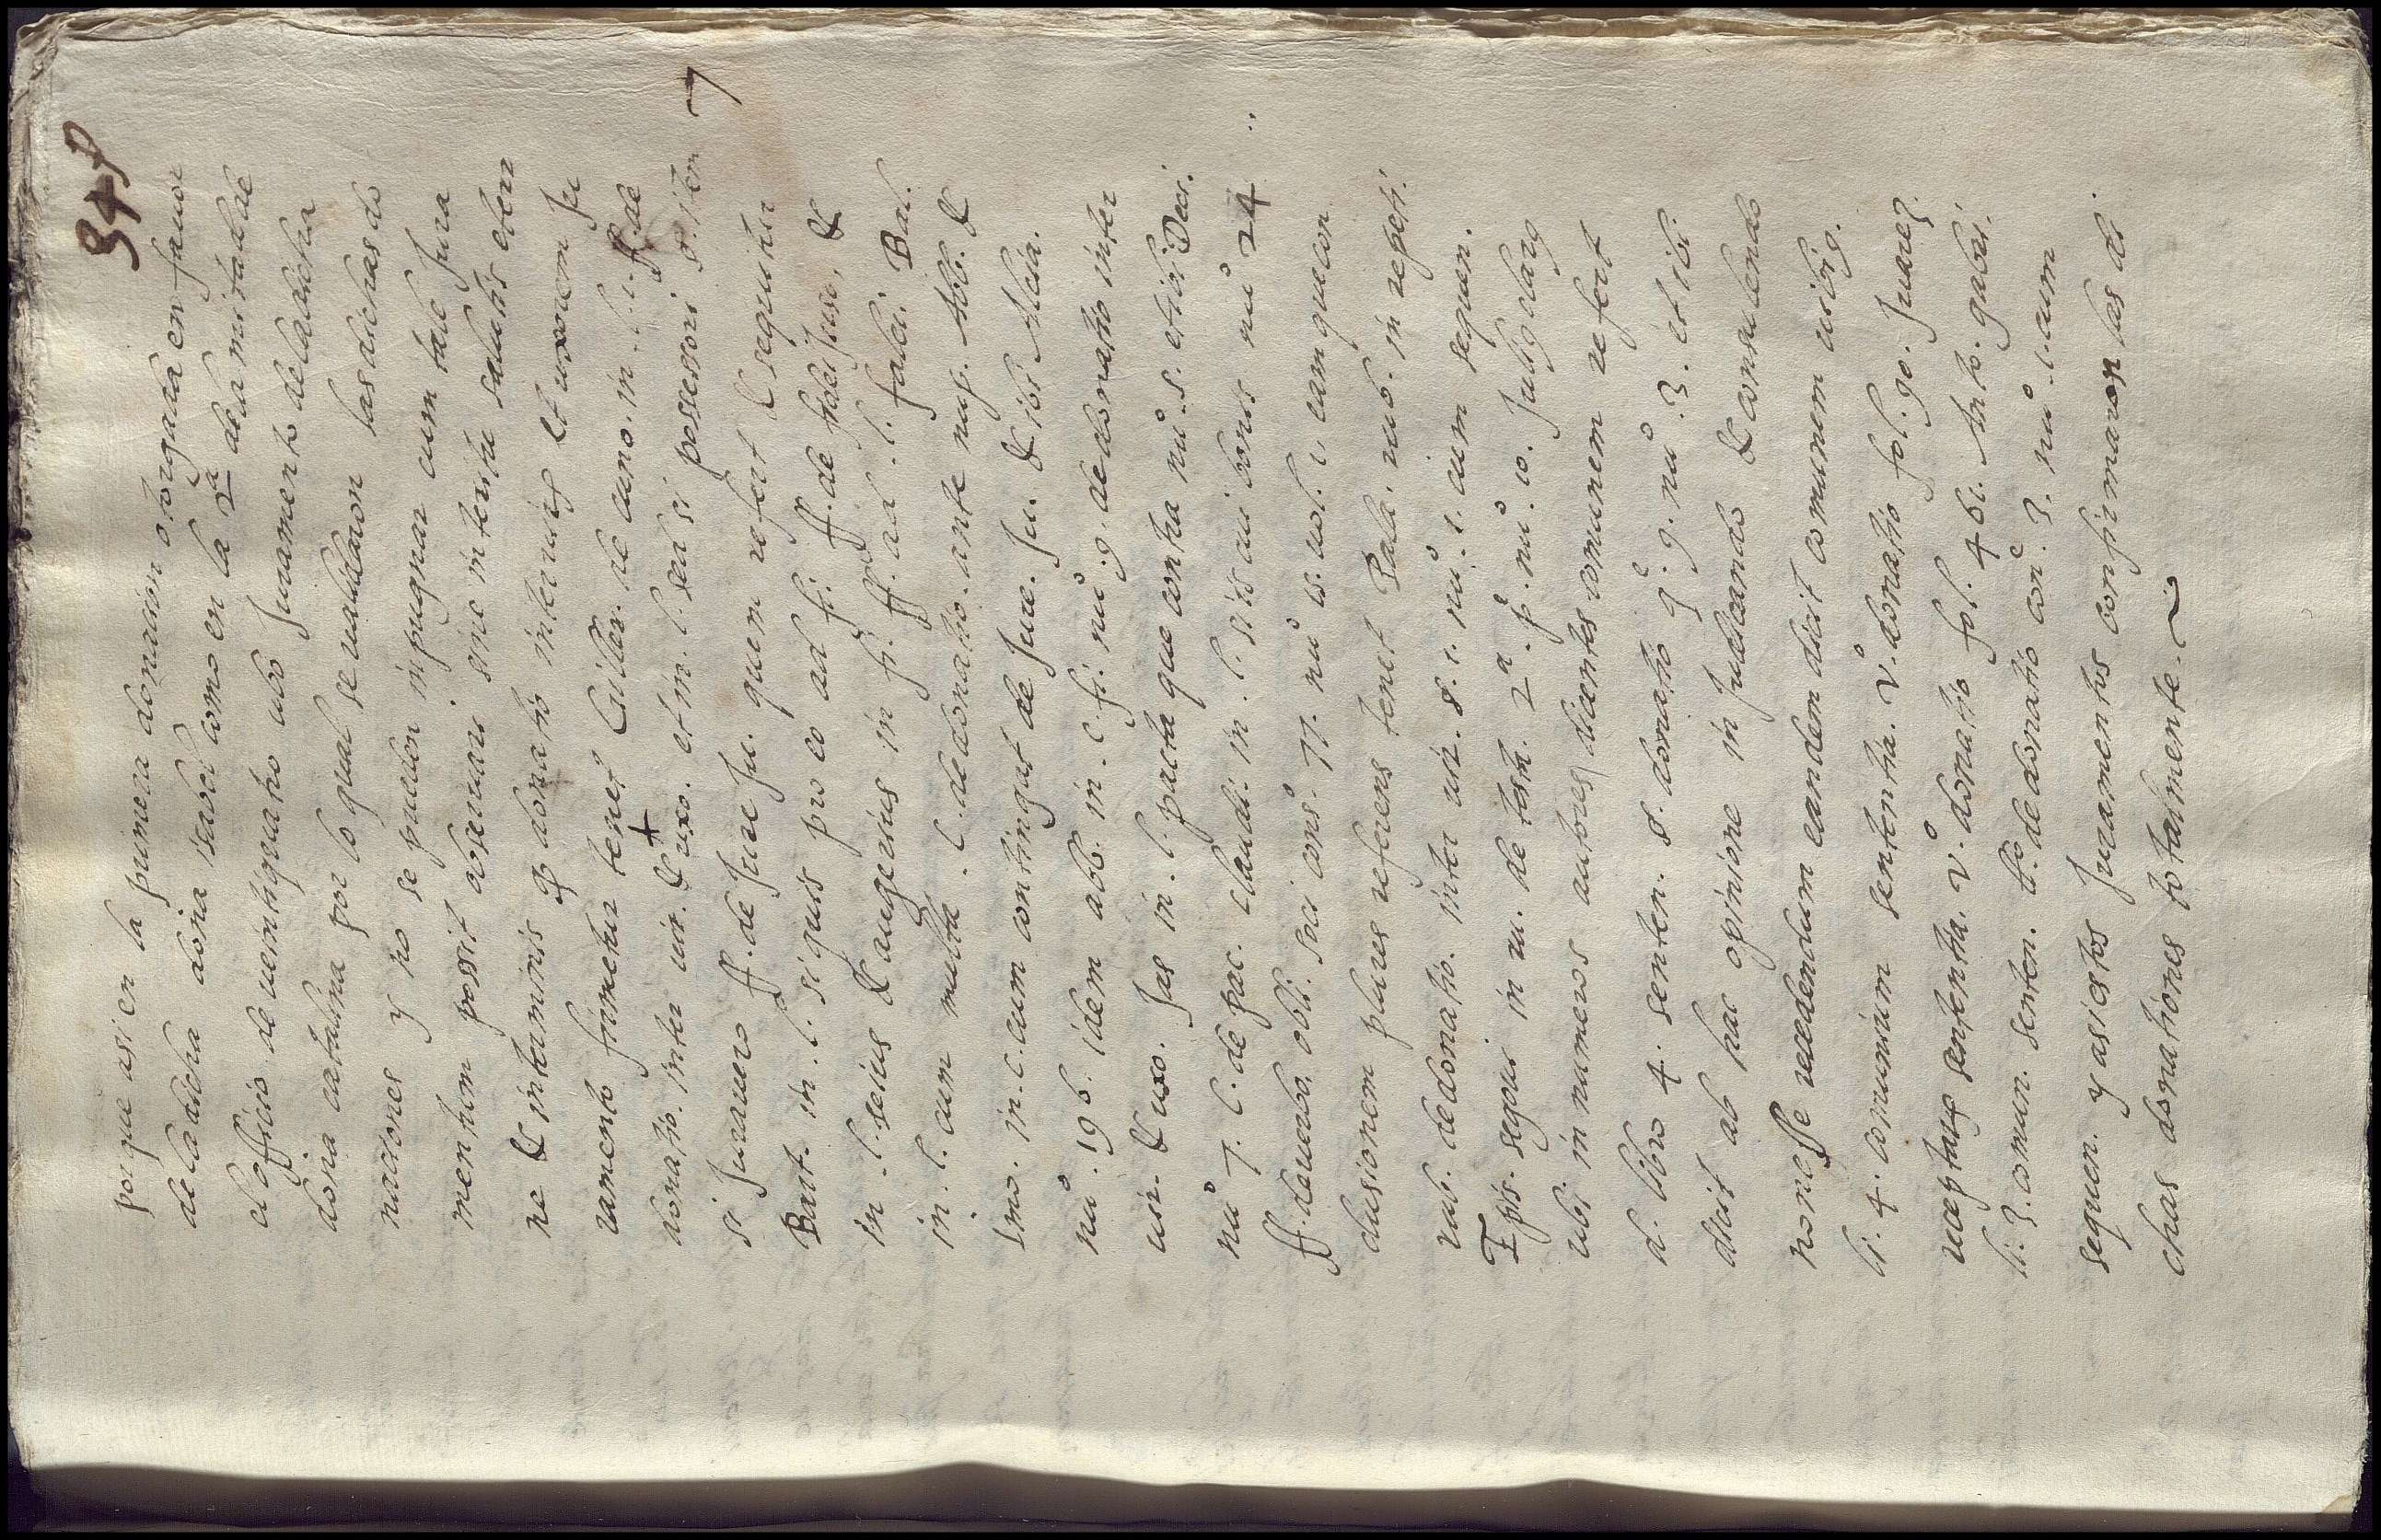 348
porque asi en la primera donacion otorgada en fauor
de la dicha doña isabel como en la 2ª de la mitad de
el officio de veintiquatro ubo Juramento de la dicha
doña catalina por lo qual se validaron las dichas do
naciones y no se pueden inpugnar cum tale Jura
mentum possit obseruari sine interitu salutis eter
ne & in terminis q donatio inter uirum et uxorem Ju
ramento firmetur tenet Guiller. de cuno. in. l. i. ff. de
donatio. inter uir. & uxo. et in. l. sed si possessori §. item
si Jurauero ff. de Jure Ju. quem refert & sequitur
Bart. in. l. si quis pro eo ad fi. ff. de fideiJuso. &
in. l. seius & augerius in fi. ff. ad. l. falci. Bal.
in. l. cum multe. C. de donatio. ante nup. Abb. &
Imo. in. c. cum contingat de Jure. Ju. & ibi Aleia.
nu. 196. idem abb. in. c. fi. nu. 9. de donatio inter
uir. & uxo. Jas in. l. pacta que contra nu. 5. et ibi Deci.
nu 7. C. de pac. claudi. in. l. si is cui bonis nu 24
ff. de uerbo. obli. soci cons. 77. nu 15. uol. 1. eamque con
clusionem plures referens tenet Pala. rub. in repeti.
rub. de donatio. inter uir. §. 1. nu. 1. cum sequen.
Epis. segoui in ru. de testa. 2ª. p. nu. 10. Julig clarg
ubi in numeros autores dicentes comunem refert
d. libro 4. senten. §. donatio q. 9. nu. 3. et ibi
dicit ab hac opinione in Judicando & consulendo
non esse recedendum eandem dicit comunem uibig.
li. 4. comunium sententia. v. donatio fol. 90. Juare3
receptarum sententia. v. donatio fol. 461. Anto. gabri.
li. 3. comun. senten. to. de donatio con. 3. nu. 1. cum
sequen. y asi estos Juramentos confirmaron las di
chas donationes totalmente.